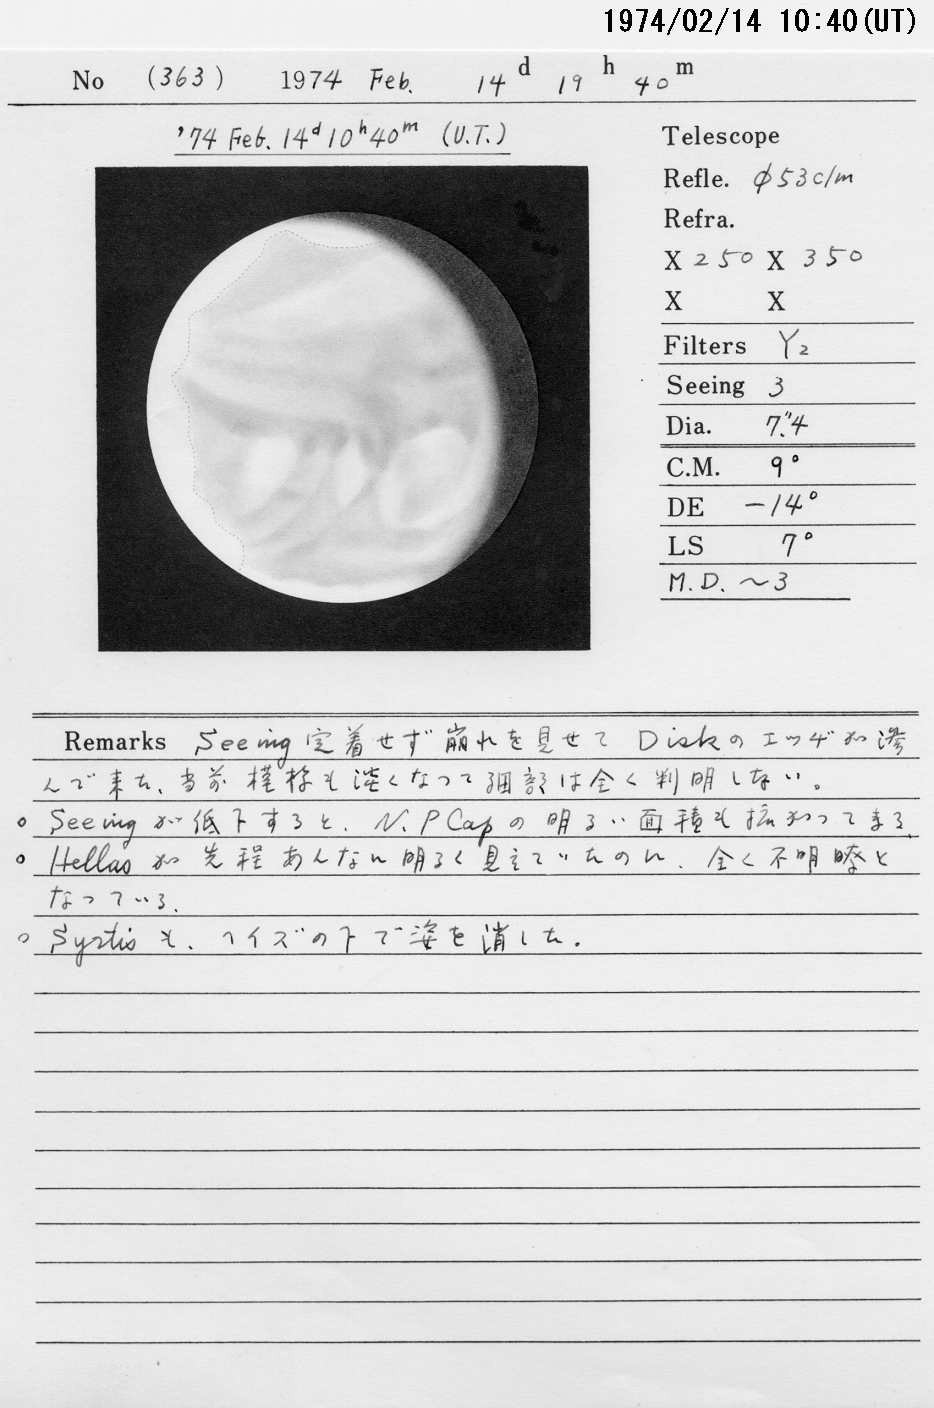 1974/02/14 10:40(UT)
No (363) 1974 Feb. 14 d 19 h 40 m
'74 Feb. 14d 10h 40m (U.T.)
Telescope
Refle. φ53c/m
Refra.
X 250 X 350
X X
Filters Y2
Seeing 3
Dia. 7."4
C.M. 9°
DE −14°
LS 7°
M.D. ~3
Remarks Seeing 定着せず崩れを見せて Diskのエッヂが滲
んで来た、当前模様も淡くなって細部は全く判明しない。
○ Seeingが低下すると、N.P Capの明るい面積も拡がってまる、
○ Hellasが先程あんなに明るく見えていたのに、全く不明瞭と
なっている、
○ Syrtisも、ヘイズの下で姿を消した。